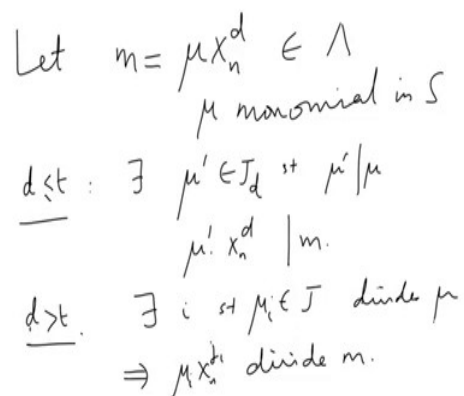 Let m = μx_n^d ∈ Λ
μ monomial in S
d≤t : ∃ μ' ∈ J_d st μ'|μ
μ'. x_n^d | m.
d>t. ∃ i st μ_i ∈ J divides μ
⇒ μ_i x_n^{t_i} divide m.